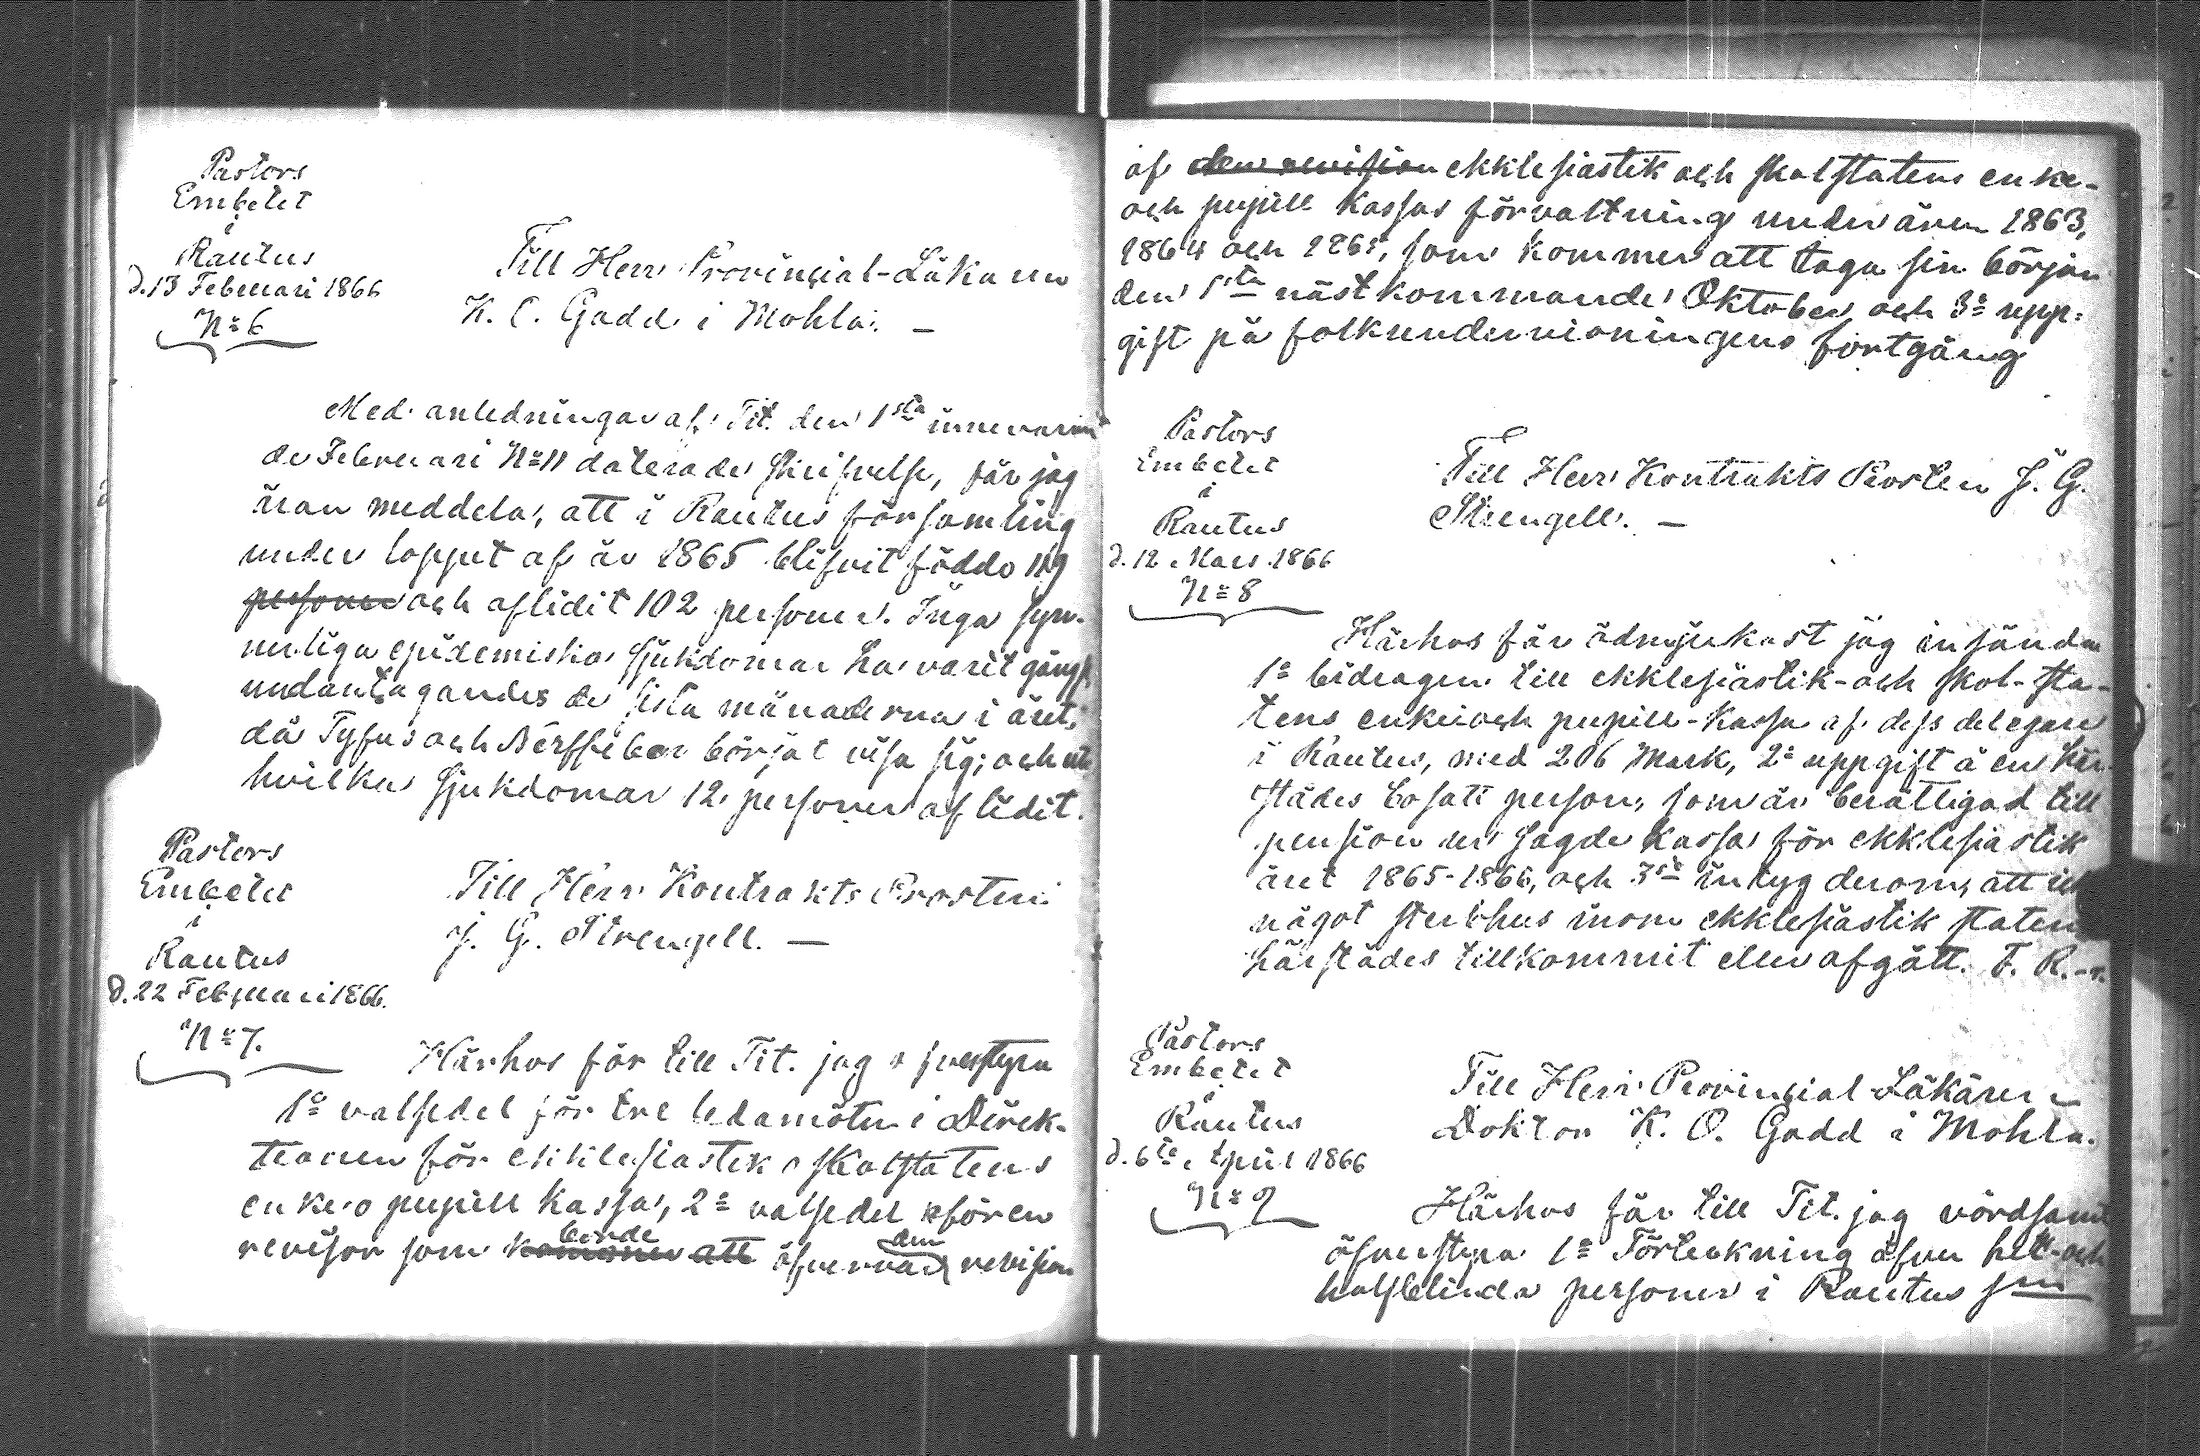 Pastors
Embetet
i
Rautus
d. 13 Februari 1866
N:o 6
Till Herr Provincial-Läkaren
K. O. Gadd i Mohla. —
Med anledningar af Tit. den 1sta innevaran
de Februari N:o 11 daterade skrifvelse, får jag
äran meddela, att i Rautus församling
under loppet af år 1865 blifvit födde 119
personer och aflidit 102 personer. Inga syn-
nerliga epidemiska sjukdomar ha varit gängse
undantagandes de sista månaderna i året,
då Tyfus och Nerffeber börjat visa sig; och
hvilka sjukdomar 12 personer aflidit.
Pastors
Embetet
i
Rautus
d. 22 Februari 1866.
N:o 7.
Till Herr Kontrakts Prosten
J. G. Strengell. —
Härhos får till Tit. jag öfverstyra
1:o valsedel för tre ledamöter i Direk-
tionen för ekklesiastik o skolstatens
enke o pupill kassa, 2:o valsedel för en
revisor som kommer att borde öfvervara den revision
af den revision ekklesiastik och skolstatens enke-
och pupill kassas förvaltning under åren 1863,
1864 och 1865, som kommer att taga sin början
den 1sta nästkommande Oktober, och 3:o upp-
gift på folkundervisningens fortgång
Pastors
Embetet
i
Rautus
d. 12 Mars 1866
N:o 8
Till Herr Kontrakts Prosten J. G.
Strengell. —
Härhos får ödmjukast jag insända
1:o bidragen till ekklesiastik- och skol-sta-
tens enke och pupill-kassa af dess delegare
i Rautus, med 206 Mark, 2:o uppgift å en här-
städes bosatt person, som är berättigad till
pension ur sagde kassa för ekklesiastik
året 1865-1866, och 3:o intyg derom, att icke
något sterbhus inom ekklesiastik staten
härstädes tillkommit eller afgått. F. R.
Pastors
Embetet
i
Rautus
d. 6te April 1866
N:o 9
Till Herr Provincial-Läkaren
Doktor K. O. Gadd i Mohla.
Härhos får till Tit. jag vördsamt
öfverstyra 1:o Förteckning öfver hel- och
halfblinda personer i Rautus